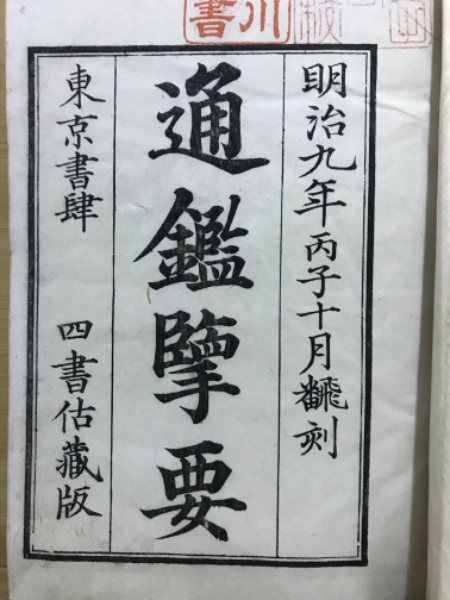 明治九年丙子十月飜刻
通鑑擥要
東京書肆 四書估藏版